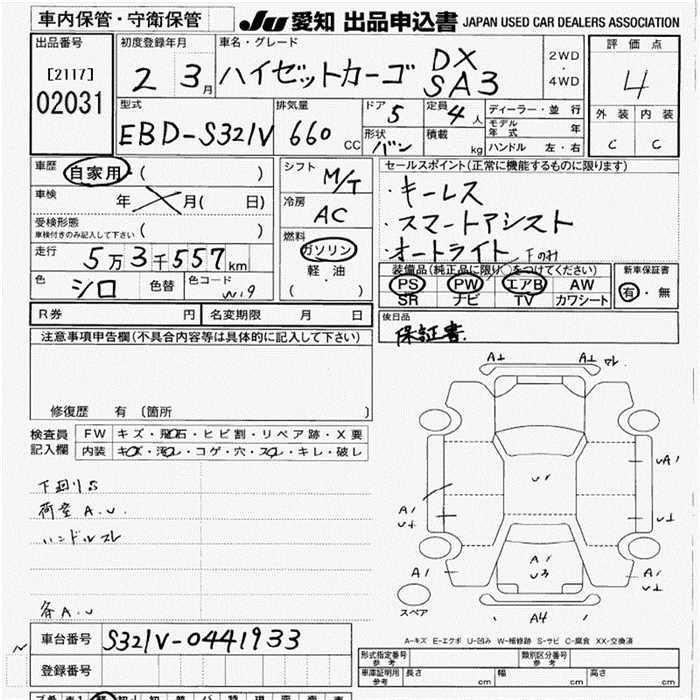 車内保管・守衛保管
JU 愛知 出品申込書 JAPAN USED CAR DEALERS ASSOCIATION
出品番号
[2117]
02031
初度登録年月
2 3月
車名・グレード
ハイゼットカーゴ DX SA3
2WD
・
4WD
評価点
4
外装 内装
C C
型式
EBD-S321V
排気量
660 CC
ドア 5
定員 4 人
形状 バン
積載 kg
ディーラー・並行
モデル年式 年
ハンドル 左・右
車歴
自家用 ( )
車検
年 月( 日)
受検形態
車検付きのみ記入して下さい ( )
走行
5万3千557km
色
シロ
色替
色コード
W19
シフト
M/T
冷房
AC
燃料
ガソリン
軽油
( )
セールスポイント(正常に機能するものに限ります)
・キーレス
・スマートアシスト
・オートライト 下のみ
装備品(純正品に限り○をつけてください)
PS PW エアB AW
SR ナビ TV カワシート
新車保証書
有・無
R券 円
名変期限 月 日
後日品
保証書
注意事項申告欄(不具合内容等は具体的に記入して下さい)
修復歴 有 〔箇所 〕
検査員記入欄
FW キズ・飛石・ヒビ割・リペア跡・X要
内装 キズ・汚レ・コゲ・穴・スレ・キレ・破レ
下廻りS
荷室A.U
ハンドルスレ
各A.U
A1
UA1
U1
A1
U3
A1
A1
A4
スペア
A-キズ E-エクボ U-凹み W-補修跡 S-サビ C-腐食 XX-交換済
車台番号
S321V-0441933
登録番号
型式指定番号
参考
類別区分番号
参考
車庫証明用
参考
長さ cm
幅 cm
高さ cm